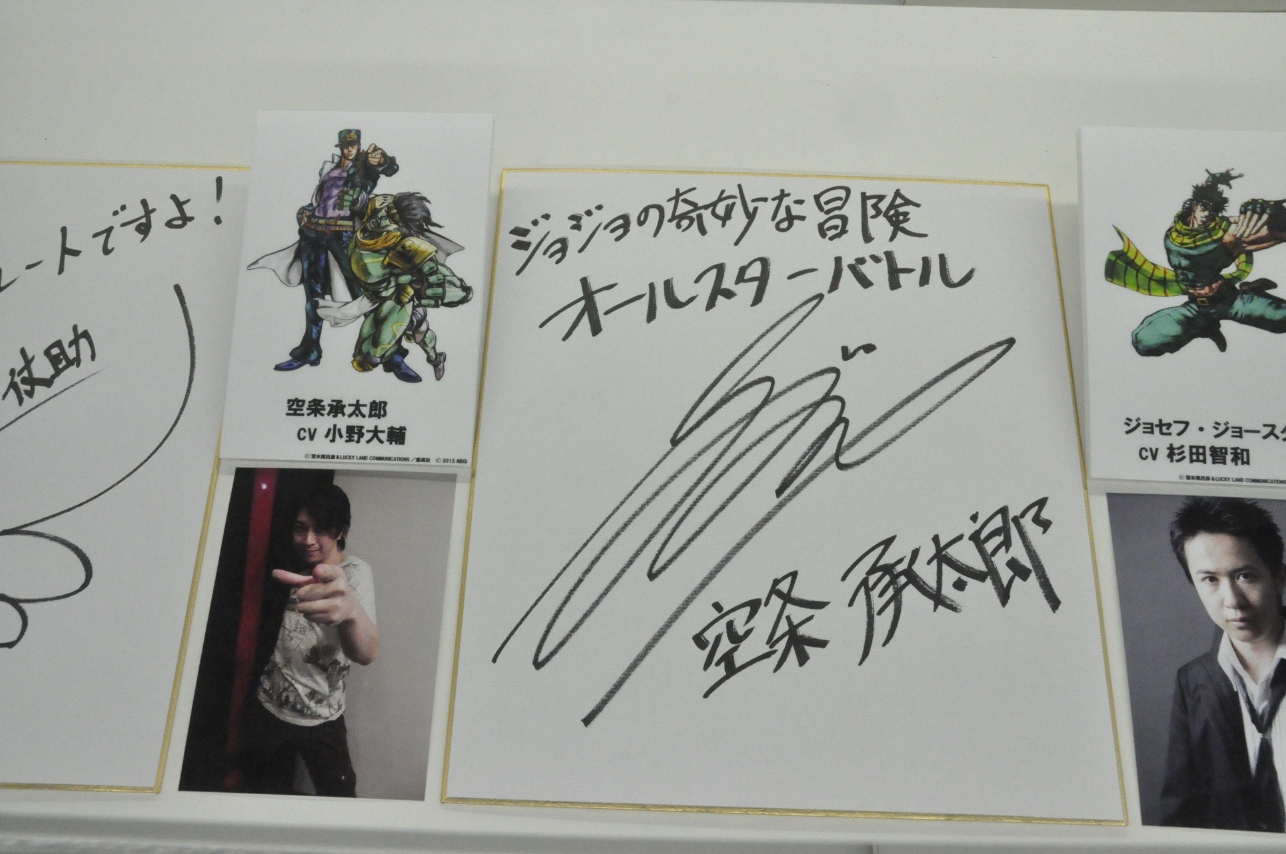 レートですよ！
仗助
空条承太郎
CV 小野大輔
©荒木飛呂彦&LUCKY LAND COMMUNICATIONS／集英社 ©2013 NBGI
ジョジョの奇妙な冒険
オールスターバトル
空条 承太郎
ジョセフ・ジョースタ
CV 杉田智和
©荒木飛呂彦&LUCKY LAND COMMUNICATIONS